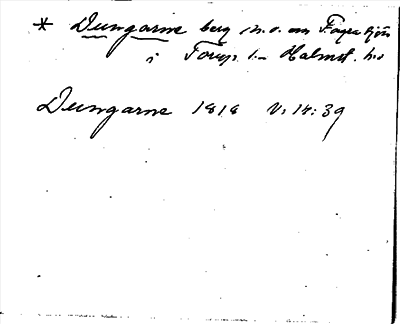 * Dungarne berg n.o. om Fagra sjön
i Torup s:n Halmst. hd
Dungarne 1818 V: 14: 39